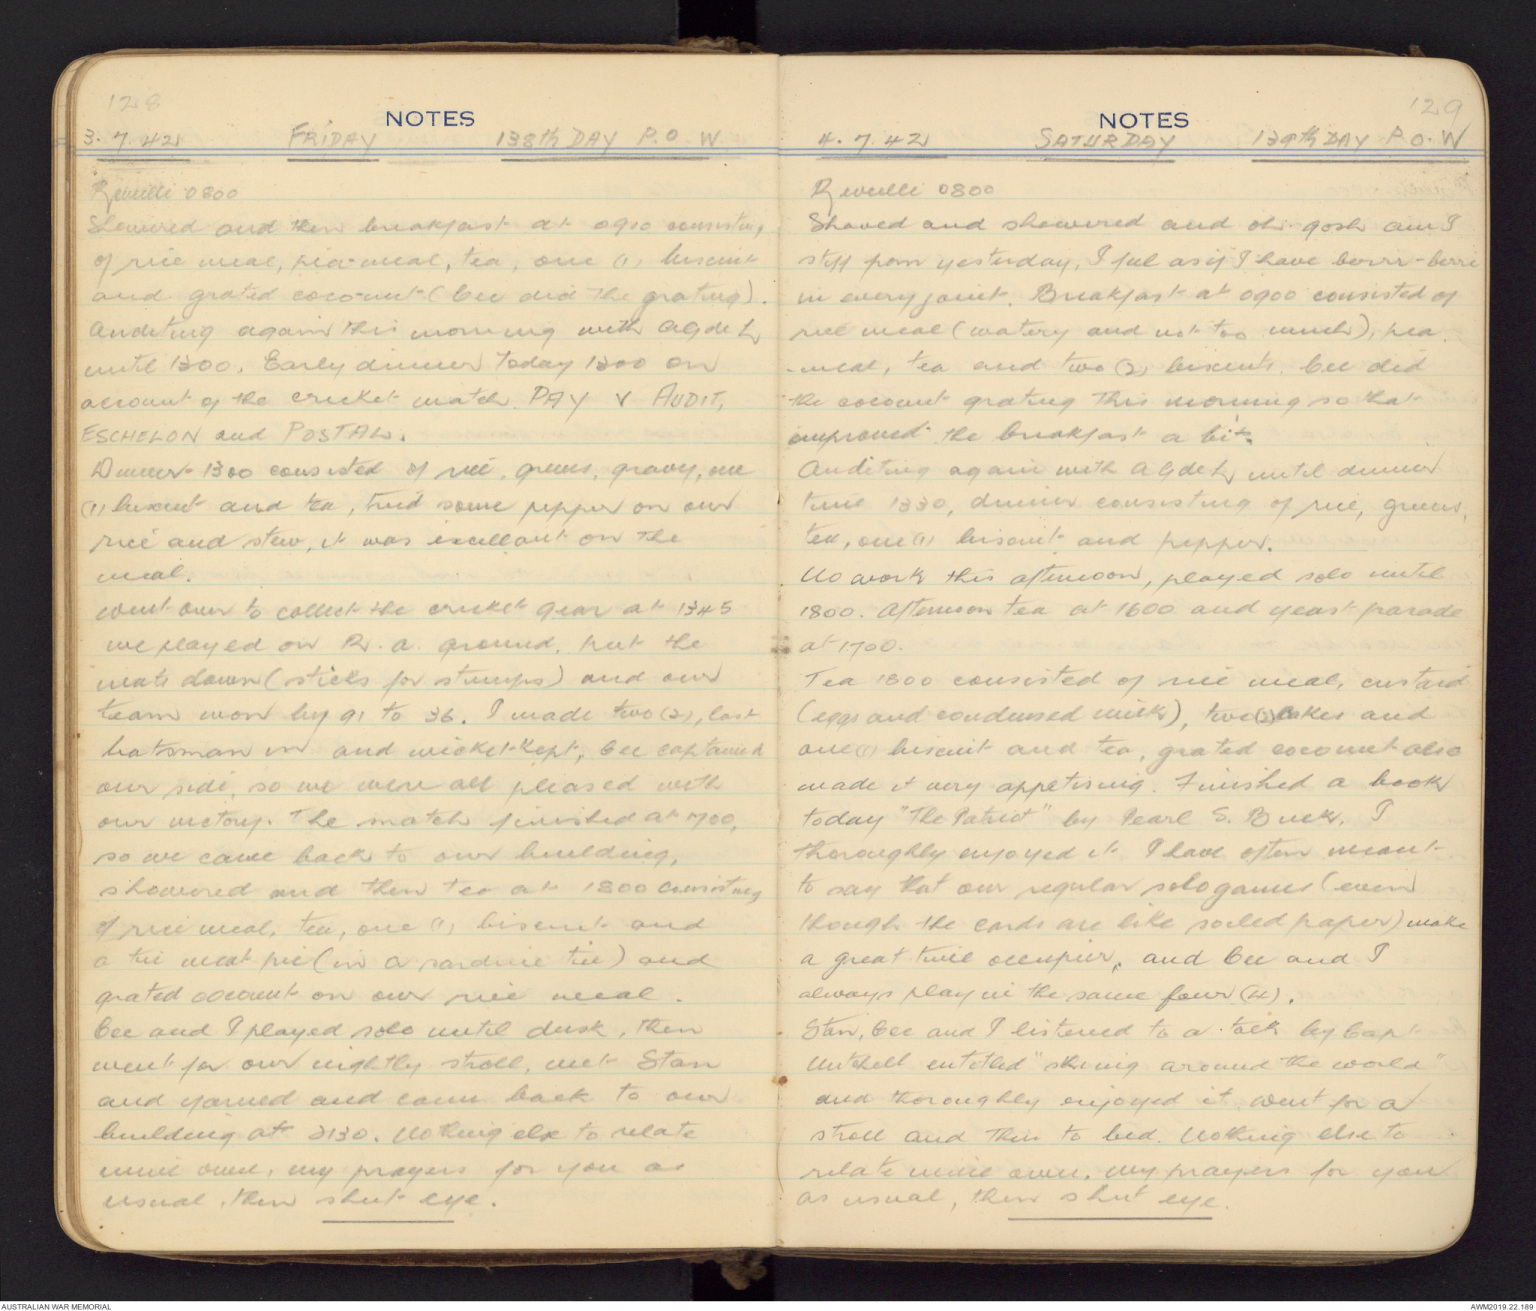 128
NOTES
3.7.42 FRIDAY 138th DAY P.O.W.
Reveille 0800
Showered and then breakfast at 0910 consisting
of rice meal, pea-meal, tea, one (1) biscuit
and grated coco-nut (Cec did the grating).
Auditing again this morning with
until 1300. Early dinner today 1300 on
account of the cricket match PAY V AUDIT,
ESCHELON and POSTAL.
Dinner 1300 consisted of rice, greens, gravy, one
(1) biscuit and tea, tried some pepper on our
rice and stew, it was excellant on the
meal.
went over to collect the cricket gear at 1345
we played on R.A. ground, put the
mats down (sticks for stumps) and our
team won by 91 to 36. I made two (2), last
batsman in and wicket-kept, Cec captained
our side, so we were all pleased with
our victory. The match finished at 1700,
so we came back to our building,
showered and then tea at 1800 consisting
of rice meal, tea, one (1) biscuit and
a tie meat pie (in a sardine tin) and
grated coconut on our rice meal.
Cec and I played solo until dusk, then
went for our nightly stroll, met Stan
and yarned and came back to our
building at 2130. Nothing else to relate
mine own, my prayers for you as
usual, then shut eye.
129
NOTES
4.7.42 SATURDAY 139th DAY P.O.W
Reveille 0800
Shaved and showered and oh gosh am I
stiff from yesterday, I feel as if I have berri-berri
in every joint. Breakfast at 0900 consisted of
rice meal (watery and not too much), pea
-meal, tea and two (2) biscuits. Cec did
the coconut grating this morning so that
improved the breakfast a bit.
Auditing again with until dinner
time 1330, dinner consisting of rice, greens,
tea, one (1) biscuit and pepper.
No work this afternoon, played solo until
1800. Afternoon tea at 1600 and yeast parade
at 1700.
Tea 1800 consisted of rice meal, custard
(eggs and condensed milk), two (2) cakes and
one (1) biscuit and tea, grated coconut also
made it very appetising. Finished a book
today "The Patriot" by Pearl S. Buck. I
thoroughly enjoyed it. I have often meant
to say that our regular solo games (even
though the cards are like soiled paper) make
a great time occupier, and Cec and I
always play in the same four (4).
Stan, Cec and I listened to a talk by Capt
Mitchell entitled "skiing around the world"
and thoroughly enjoyed it, went for a
stroll and then to bed. Nothing else to
relate mine own, my prayers for you
as usual, then shut eye.
AUSTRALIAN WAR MEMORIAL
AWM2019.22.189